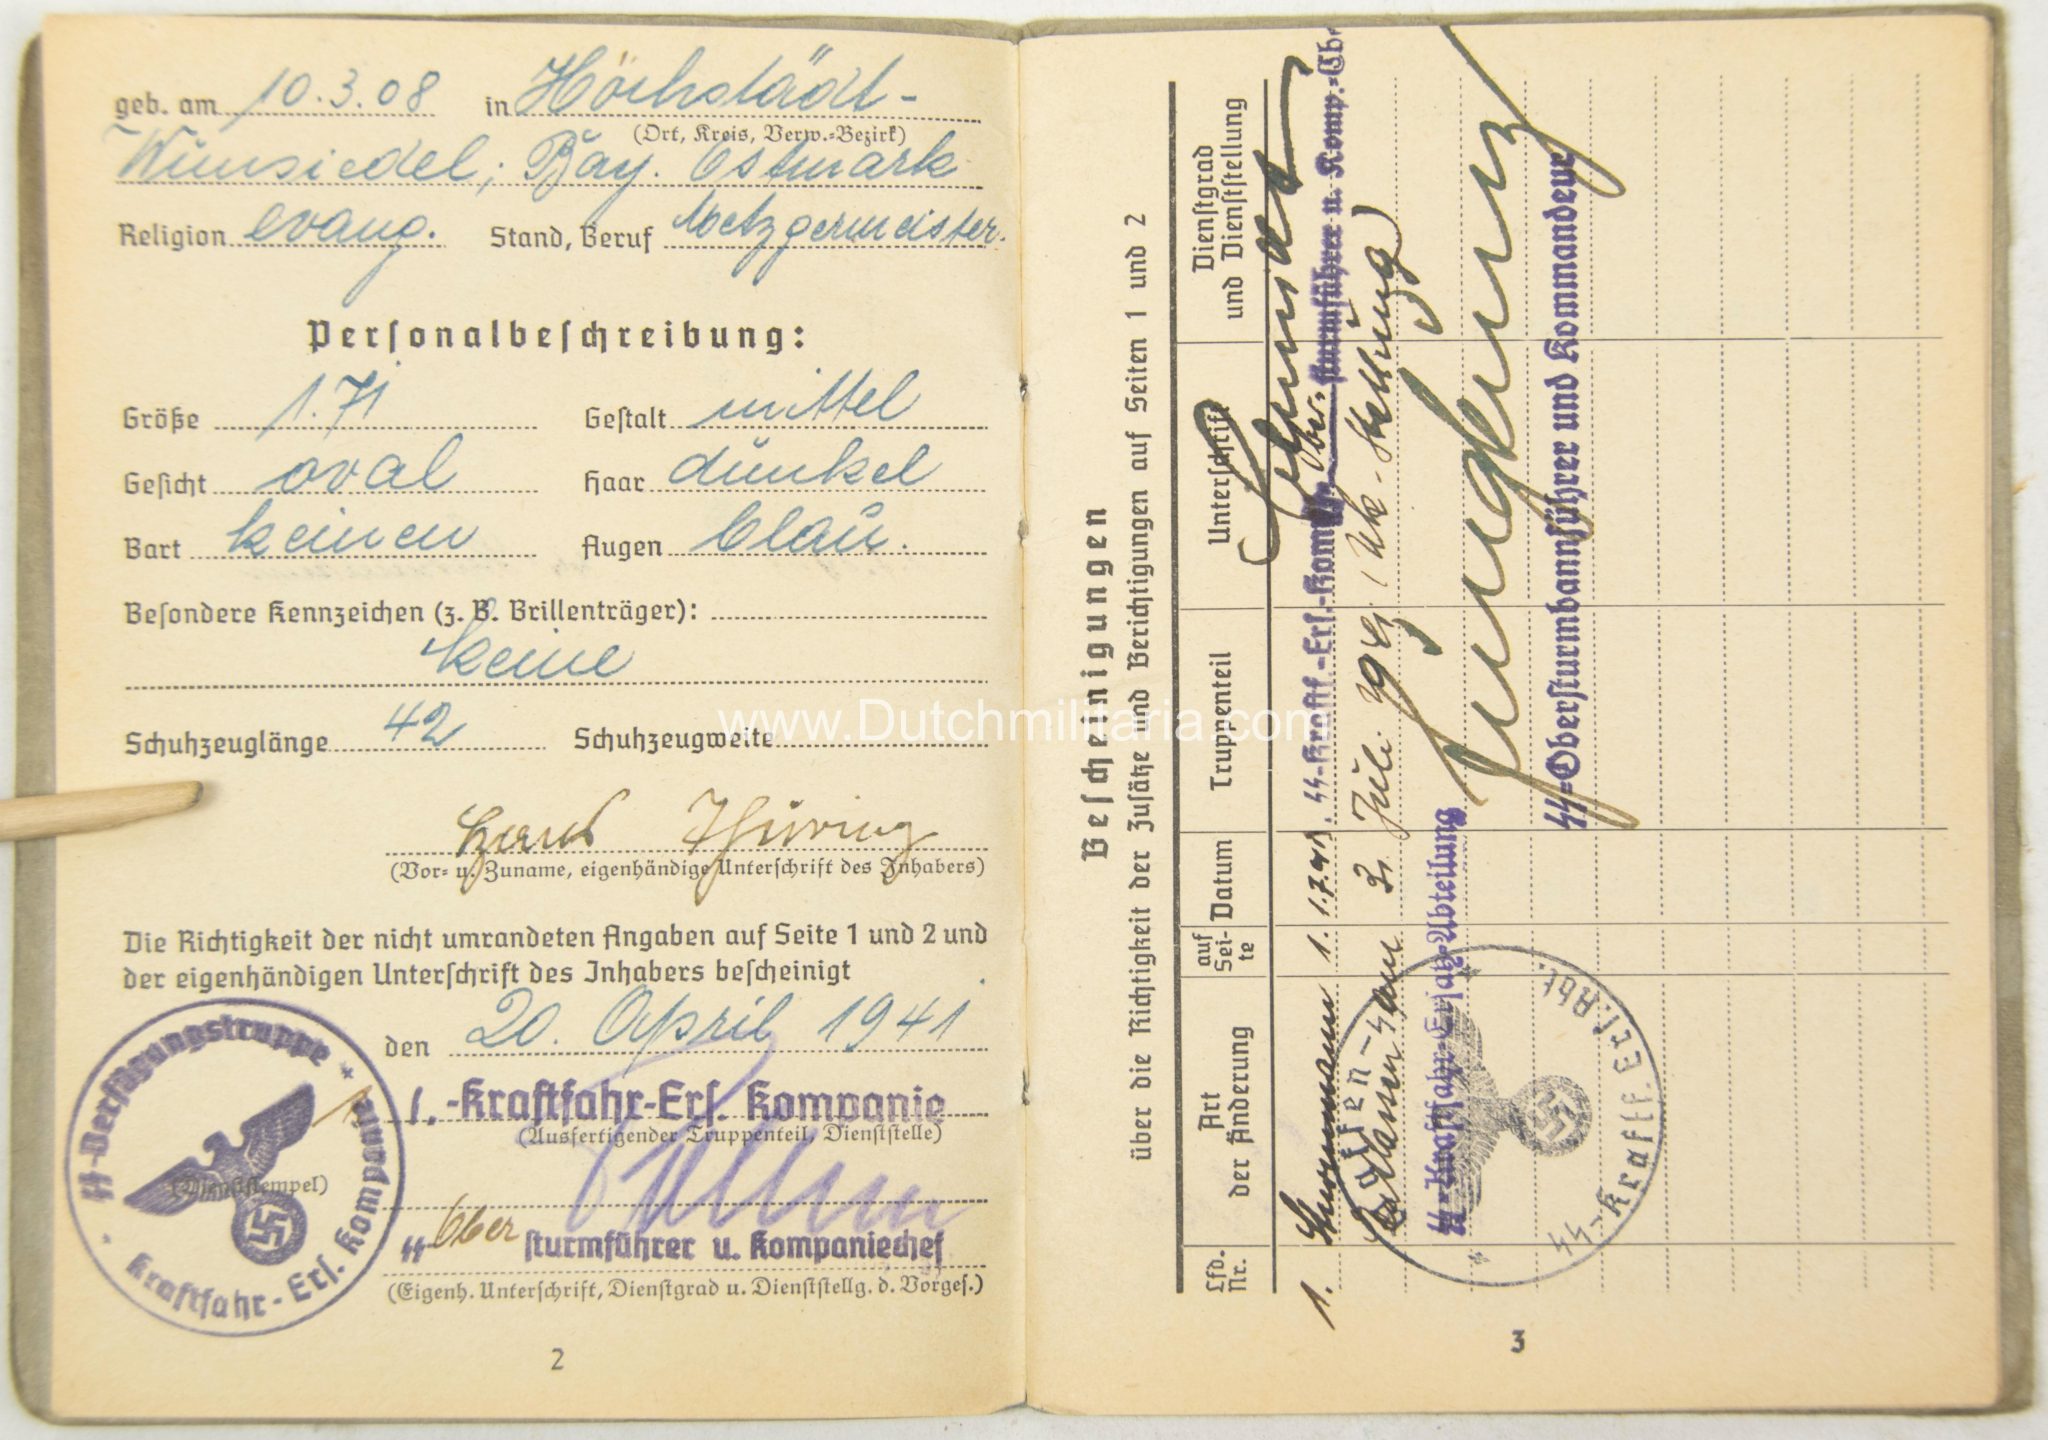 geb. am 10.3.08 in Höchstädt-
(Ort, Kreis, Verw.-Bezirk)
Wunsiedel, Bay. Ostmark
Religion evang. Stand, Beruf Metzgermeister.
Personalbeschreibung:
Größe 1.71 Gestalt mittel
Gesicht oval Haar dunkel
Bart keinen Augen blau.
Besondere Kennzeichen (z. B. Brillenträger):
keine
Schuhzeuglänge 42 Schuhzeugweite
www.Dutchmilitaria.com
Hans Thüring
(Vor- u. Zuname, eigenhändige Unterschrift des Inhabers)
Die Richtigkeit der nicht umrandeten Angaben auf Seite 1 und 2 und
der eigenhändigen Unterschrift des Inhabers bescheinigt
den 20. April 1941
1.-Kraftfahr-Ers. Kompanie
(Ausfertigender Truppenteil, Dienststelle)
SS-Verfügungstruppe
1. Kraftfahr-Ers. Kompanie
(Dienststempel)
SS Ober sturmführer u. Kompaniechef
(Eigenh. Unterschrift, Dienstgrad u. Dienststellg. d. Vorges.)
2
Bescheinigungen
über die Richtigkeit der Zusätze und Berichtigungen auf Seiten 1 und 2
Lfd. Nr. Art der Änderung auf Sei- te Datum Truppenteil Unterschrift Dienstgrad und Dienststellung
1. Sturmmann 1. 1.7.41. SS-Kraftf.-Ers.-Komp.
SS-Ober-sturmführer u. Komp.-Che
Entlassen am 3. Juli 1941 (Uk-Stellung)
SS-Kraftfahr-Ersatz-Abteilung
SS-Kraftf. Ers. Abt.
SS-Obersturmbannführer und Kommandeur
3